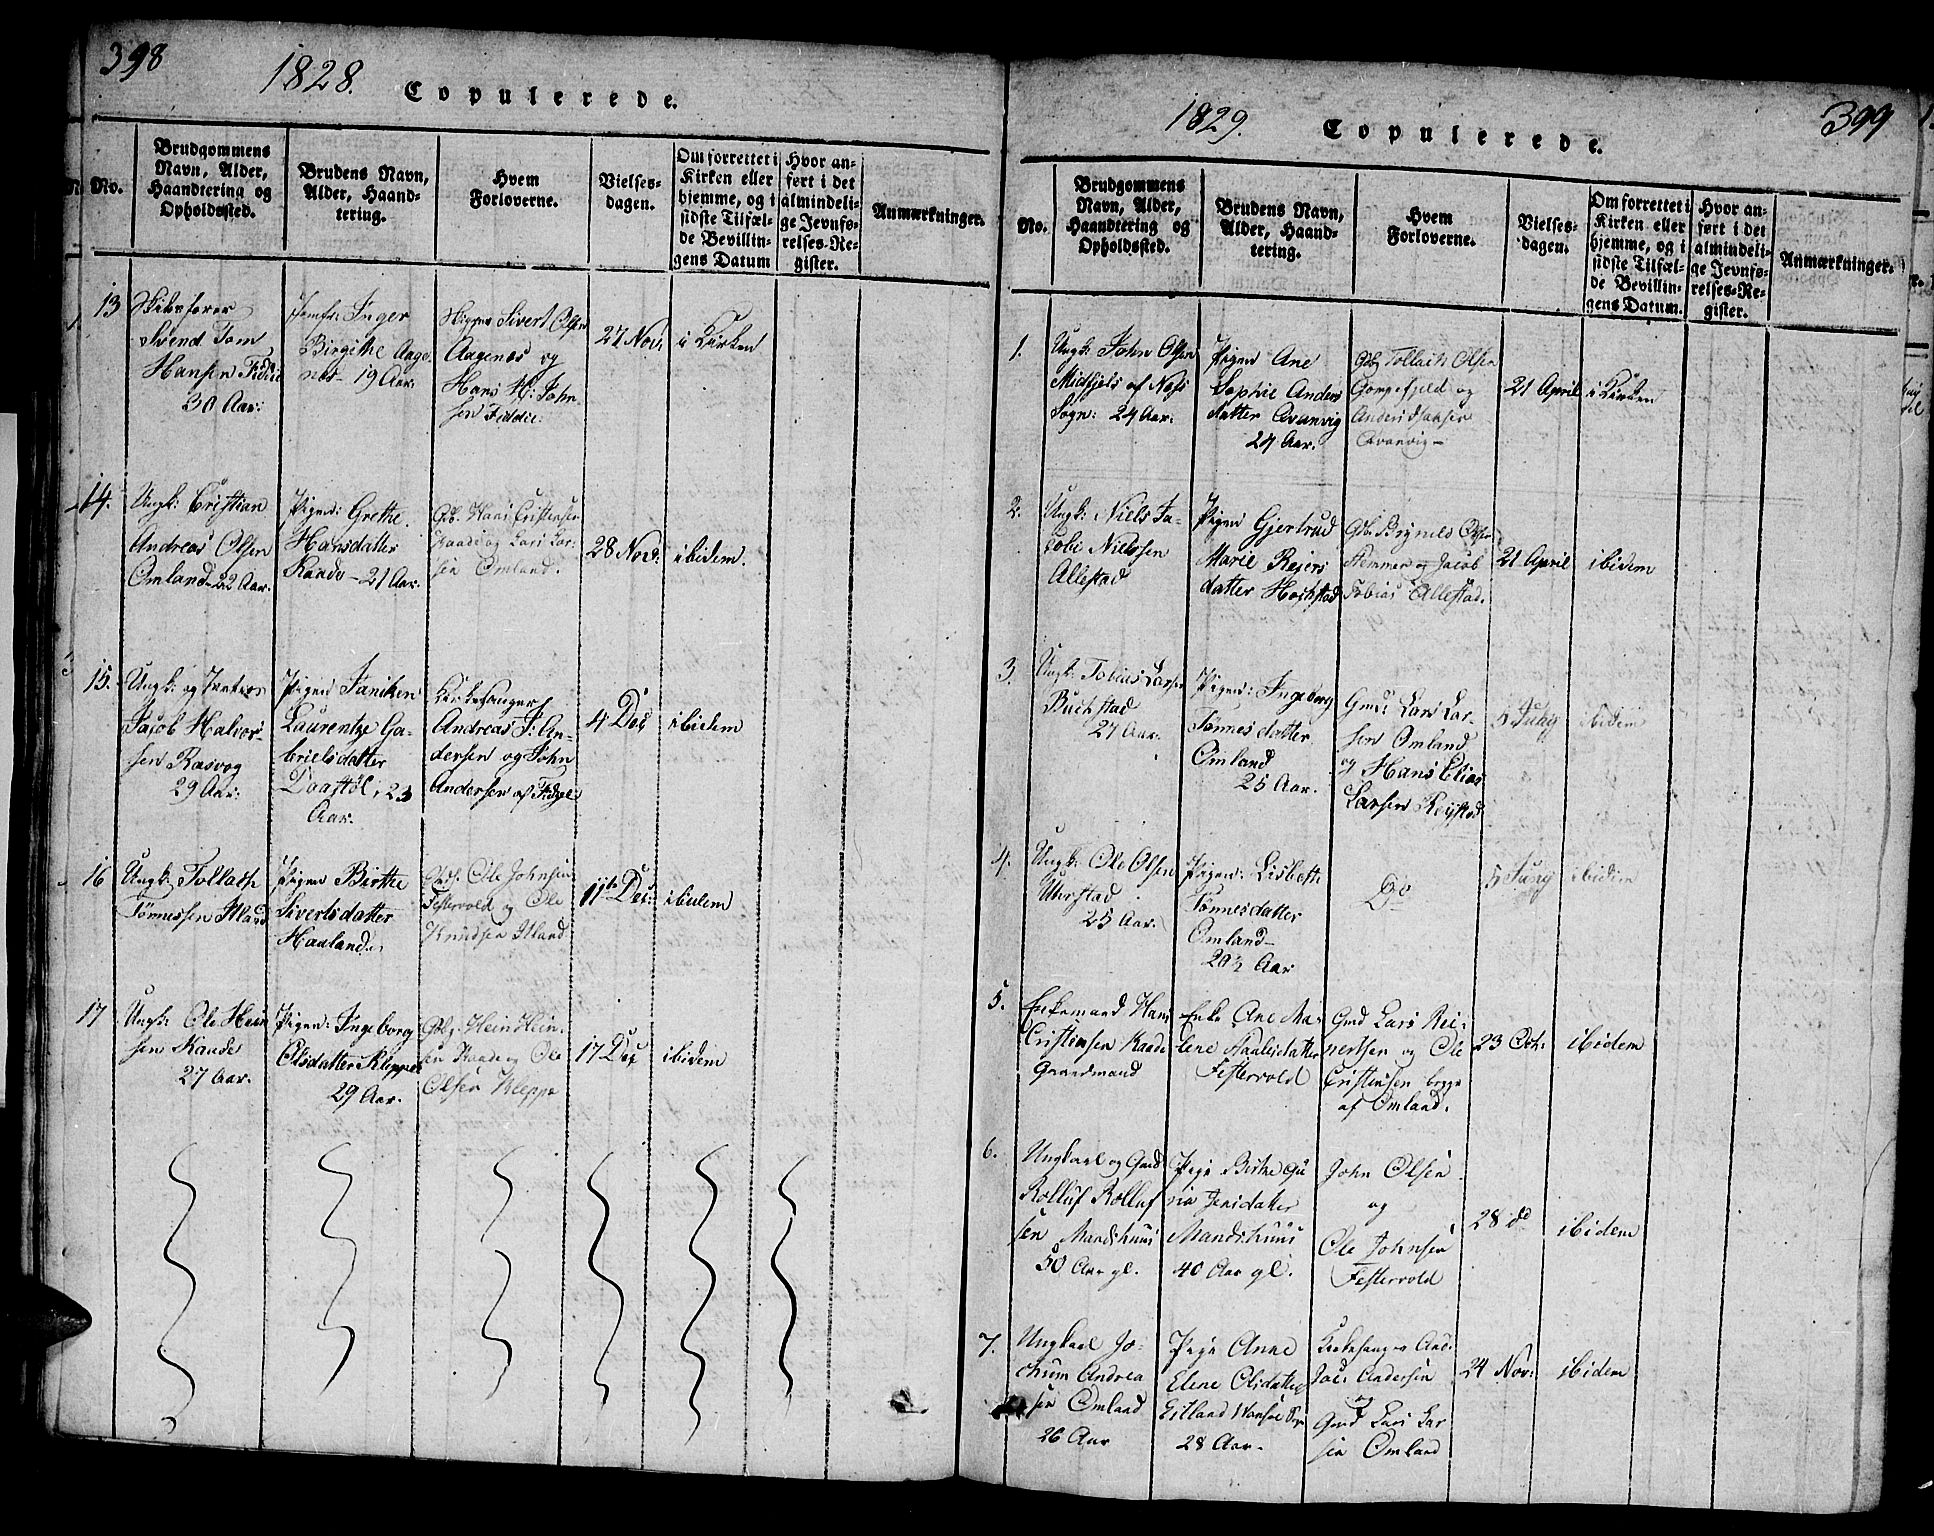 398
1828.
Copulerede.
No.
Brudgommens
Navn, Alder,
Haandtering og
Opholdssted.
Brudens Navn,
Alder, Haand-
tering.
Hvem
Forloverne.
Vielses-
dagen.
Om forrettet i
Kirken eller
hjemme, og i
sidste Tilfæl-
de Bevillin-
gens Datum
Hvor an-
ført i det
almindeli-
ge Jevnfø-
relses-Re-
gister.
Anmærkninger.
13
Svend Tom
Hansen
30 Aar:
Jomfr: Inger
Birgithe Aage-
nes - 19 Aar.
Sivert Olsen
Aagenes og
Hans H: John-
sen Fiddie.
27 Nov:
i Kirken
14.
Ungk: Cristian
Andreas Olsen
Omland - 22 Aar.
Pigen: Grethe
Hansdatter
Raade - 21 Aar.
Gb. Hans Cristensen
Raade og Lars Lar-
sen Omland.
28 Nov:
ibidem.
15.
Ungk: og
Jacob Halvor-
sen Rasvog
29 Aar:
Pigen Taniken
Laurentze Ga-
brielsdatter
Daastöl, 23
Aar.
Kirkesanger
Andreas J: An-
dersen og John
Andersen af
4 Dec
ibidem
16
Ungk: Tollach
Tønnessen Iland
Pigen Birthe
Sivertsdatter
Haaland.
Ole Johnsen
Festervold og Ole
Knudsen Iland
11te Dec:
ibidem
17
Ungk: Ole Hein
sen Raade
27 Aar.
Pigen: Ingeborg
Olsdatter Kleppe
29 Aar.
Gb. Hein Hein-
sen Raade og Ole
Olsen Kleppe
17 Dec
ibidem
1829.
Copulerede.
399
No.
Brudgommens
Navn, Alder,
Haandtering og
Opholdssted.
Brudens Navn,
Alder, Haand-
tering.
Hvem
Forloverne.
Vielses-
dagen.
Om forrettet i
Kirken eller
hjemme, og i
sidste Tilfæl-
de Bevillin-
gens Datum.
Hvor an-
ført i det
almindeli-
ge Jevnfø-
relses-Re-
gister.
Anmærkninger.
1.
Ungk: John Olsen
Midfjels af Næs
Sogn: 24 Aar.
Pigen Ane
Sophie Anders
datter Avanvig
24 Aar.
Gb Tollach Olsen
Gorgefjeld og
Anders Hansen
Avanvig -
21 April
i Kirken
2.
Ungk: Niels Ja-
cobi Nielssen
Allestad
Pigen Gjertrud
Marie Reiers
datter Hochstad
Gb. Brynild Olsen
Stemmer og Jacob
Tobias Allestad.
21 April
ibidem
3.
Ungk: Tobias Larsen
Buchstad
27 Aar.
Pigen: Ingeborg
Tönnesdatter
Omland
25 Aar.
Gmd: Lars Lar-
sen Omland
og Hans Elias
Larsen Reystad
5 July
ibidem
4.
Ungk: Ole Olsen
25 Aar.
Pigen: Lisbeth
Tønnesdatter
Omland -
20½ Aar
Do
5 July
ibidem
5.
Enkemand Hans
Cristensen Raade
Gaardmand
Enke Ane Ma-
lene Aanlesdatter
Festervold
Gmd Lars Rei-
nertsen og Ole
Cristensen begge
af Omland.
23 Oct.
ibidem
6.
Ungkarl og Gmd
Rolluf Rolluf
sen Mandshuus
50 Aar gl.
Pige Berthe Gu
ria Jensdatter
Mandshuus
40 Aar gl.
John Olsen
og
Ole Johnsen
Festervold
28 do
ibidem
7.
Ungkarl Jo-
chum Andrea
sen Omland
26 Aar
Pige Anne
Elene Olsdatter
Eitland Vansøe Sogn
28 Aar.
Kirkesanger And.
Jac: Andersen
og
Gmd Lars Lar
sen Omland
24 Nov:
ibidem